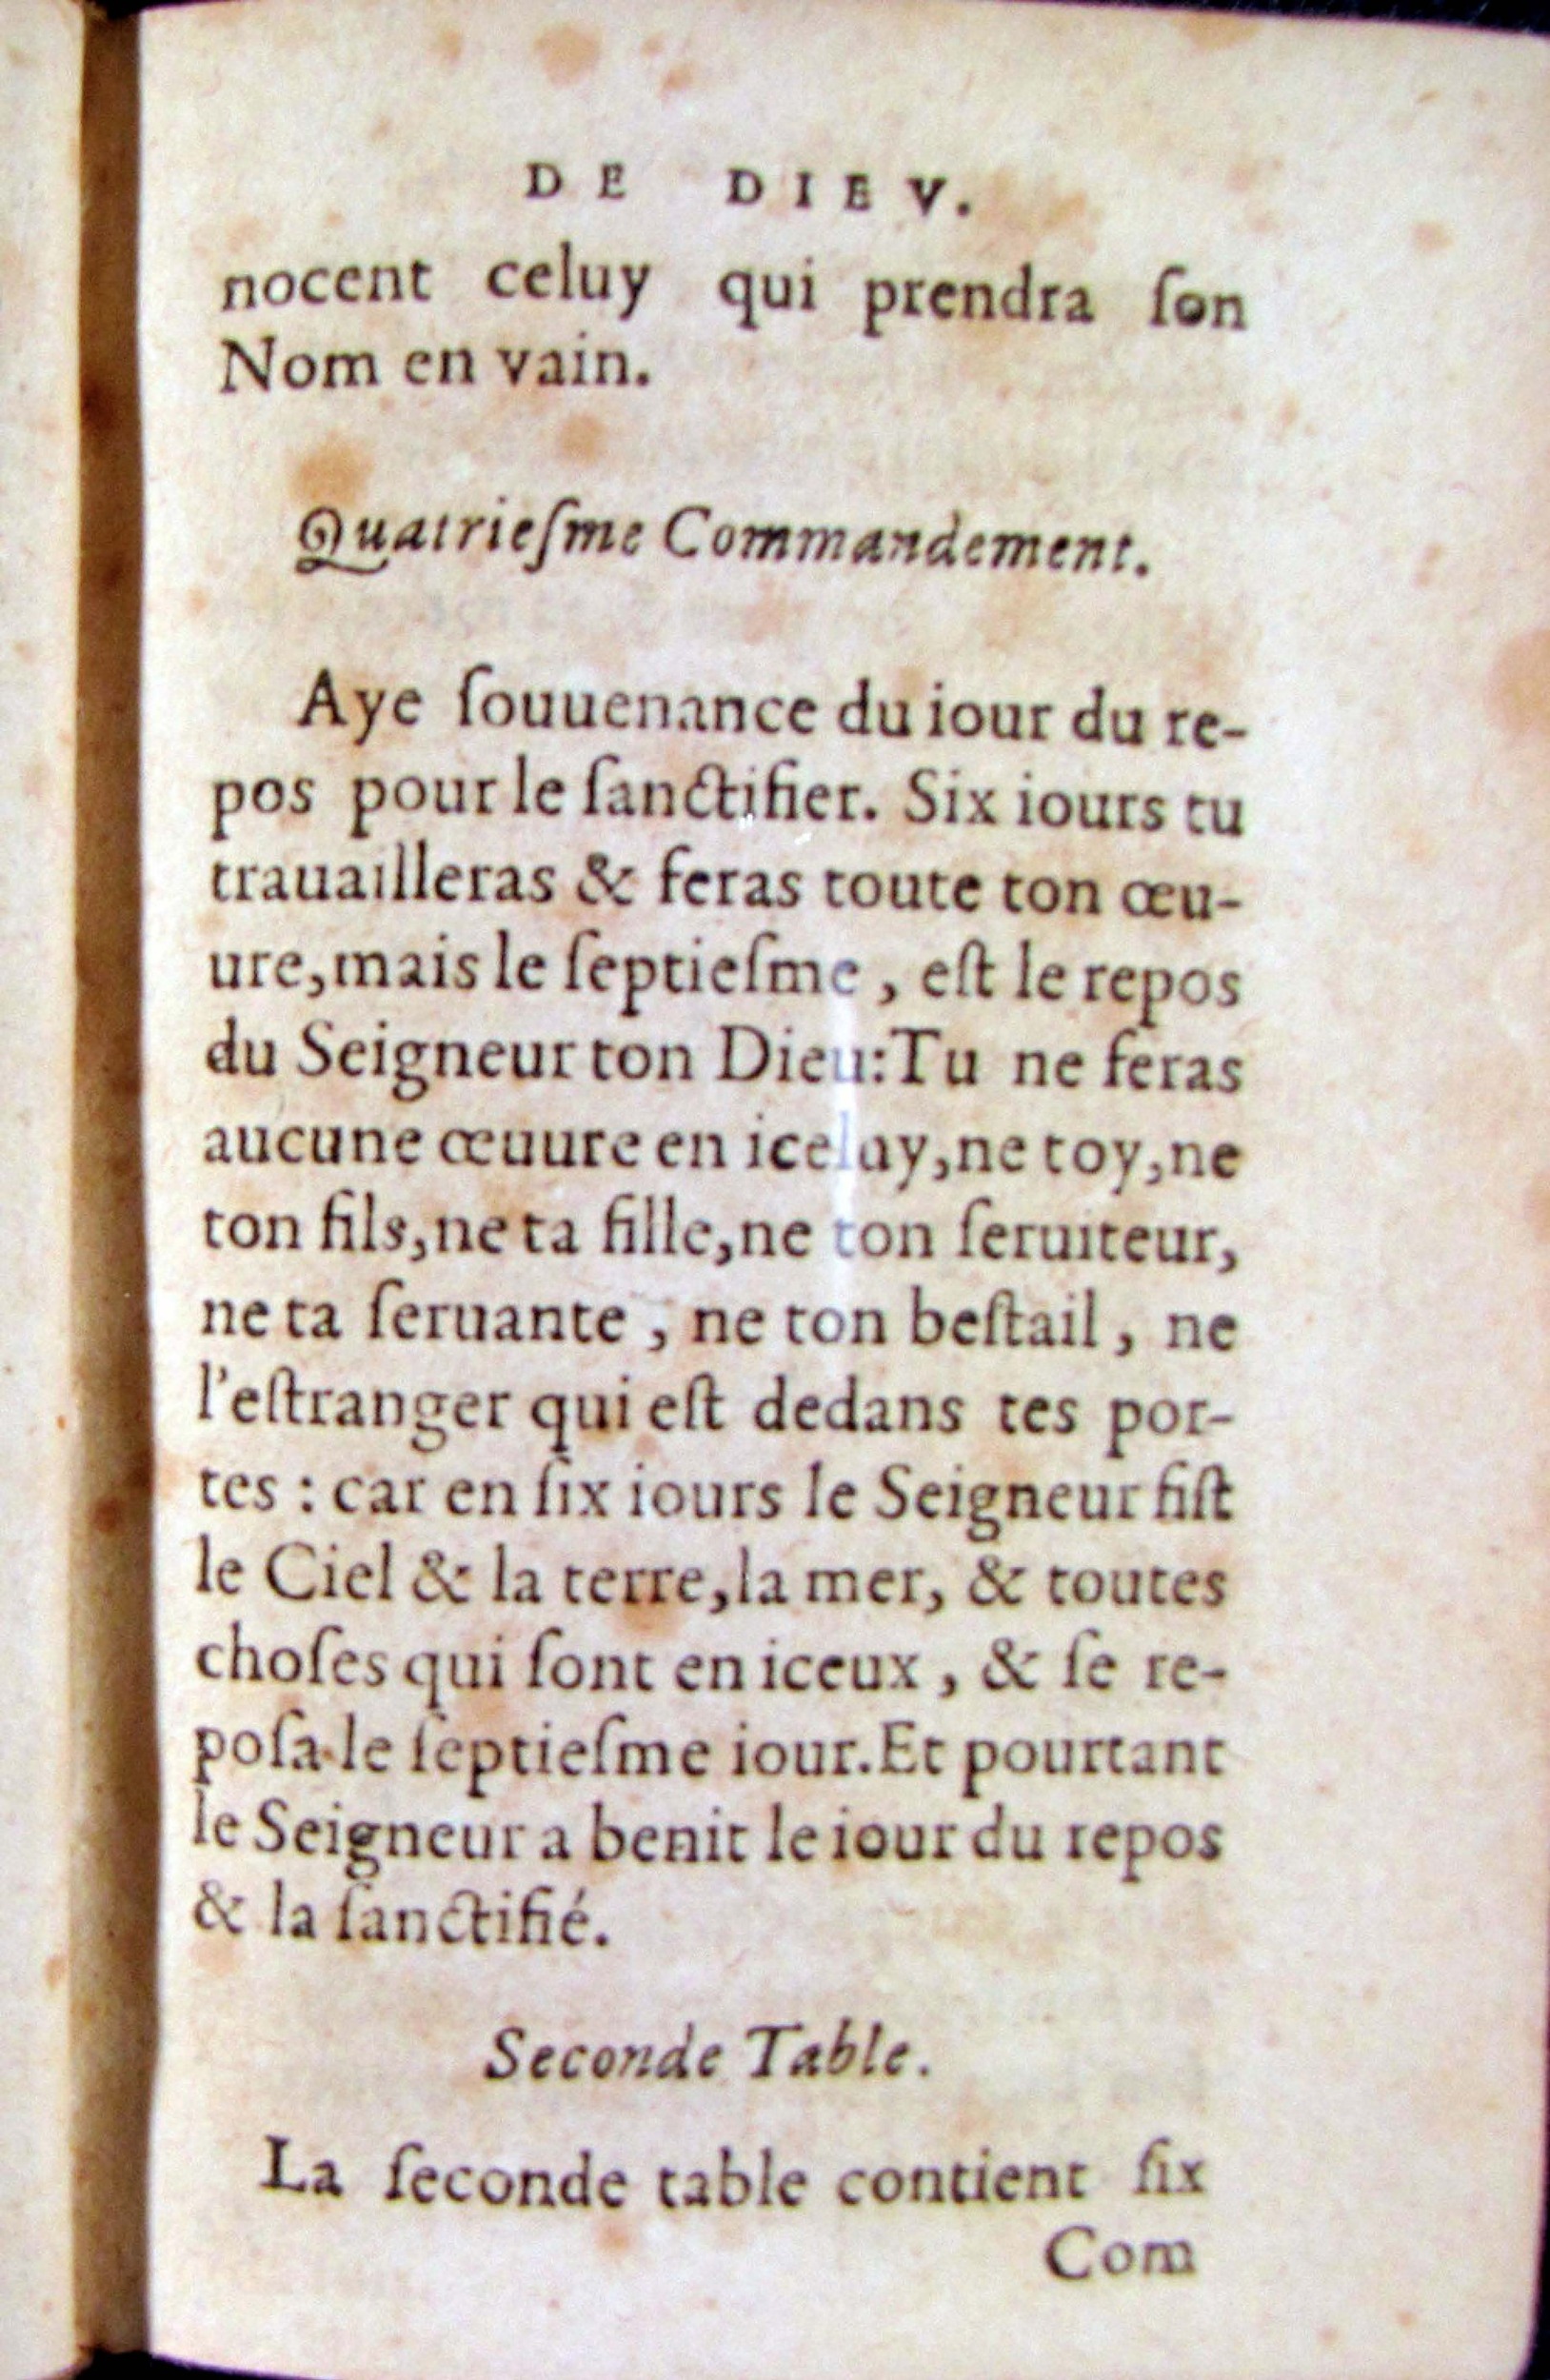 DE DIEV.
nocent celuy qui prendra ſon
Nom en vain.
Quatrieſme Commandement.
Aye ſouuenance du iour du re-
pos pour le ſanctifier. Six iours tu
trauailleras & feras toute ton œu-
ure,mais le ſeptieſme , eſt le repos
du Seigneur ton Dieu:Tu ne feras
aucune œuure en iceluy,ne toy,ne
ton fils,ne ta fille,ne ton ſeruiteur,
ne ta ſeruante , ne ton beſtail , ne
l'eſtranger qui eſt dedans tes por-
tes : car en ſix iours le Seigneur fiſt
le Ciel & la terre,la mer, & toutes
choſes qui ſont en iceux , & ſe re-
poſa le ſeptieſme iour.Et pourtant
le Seigneur a benit le iour du repos
& la ſanctifié.
Seconde Table.
La ſeconde table contient ſix
Com